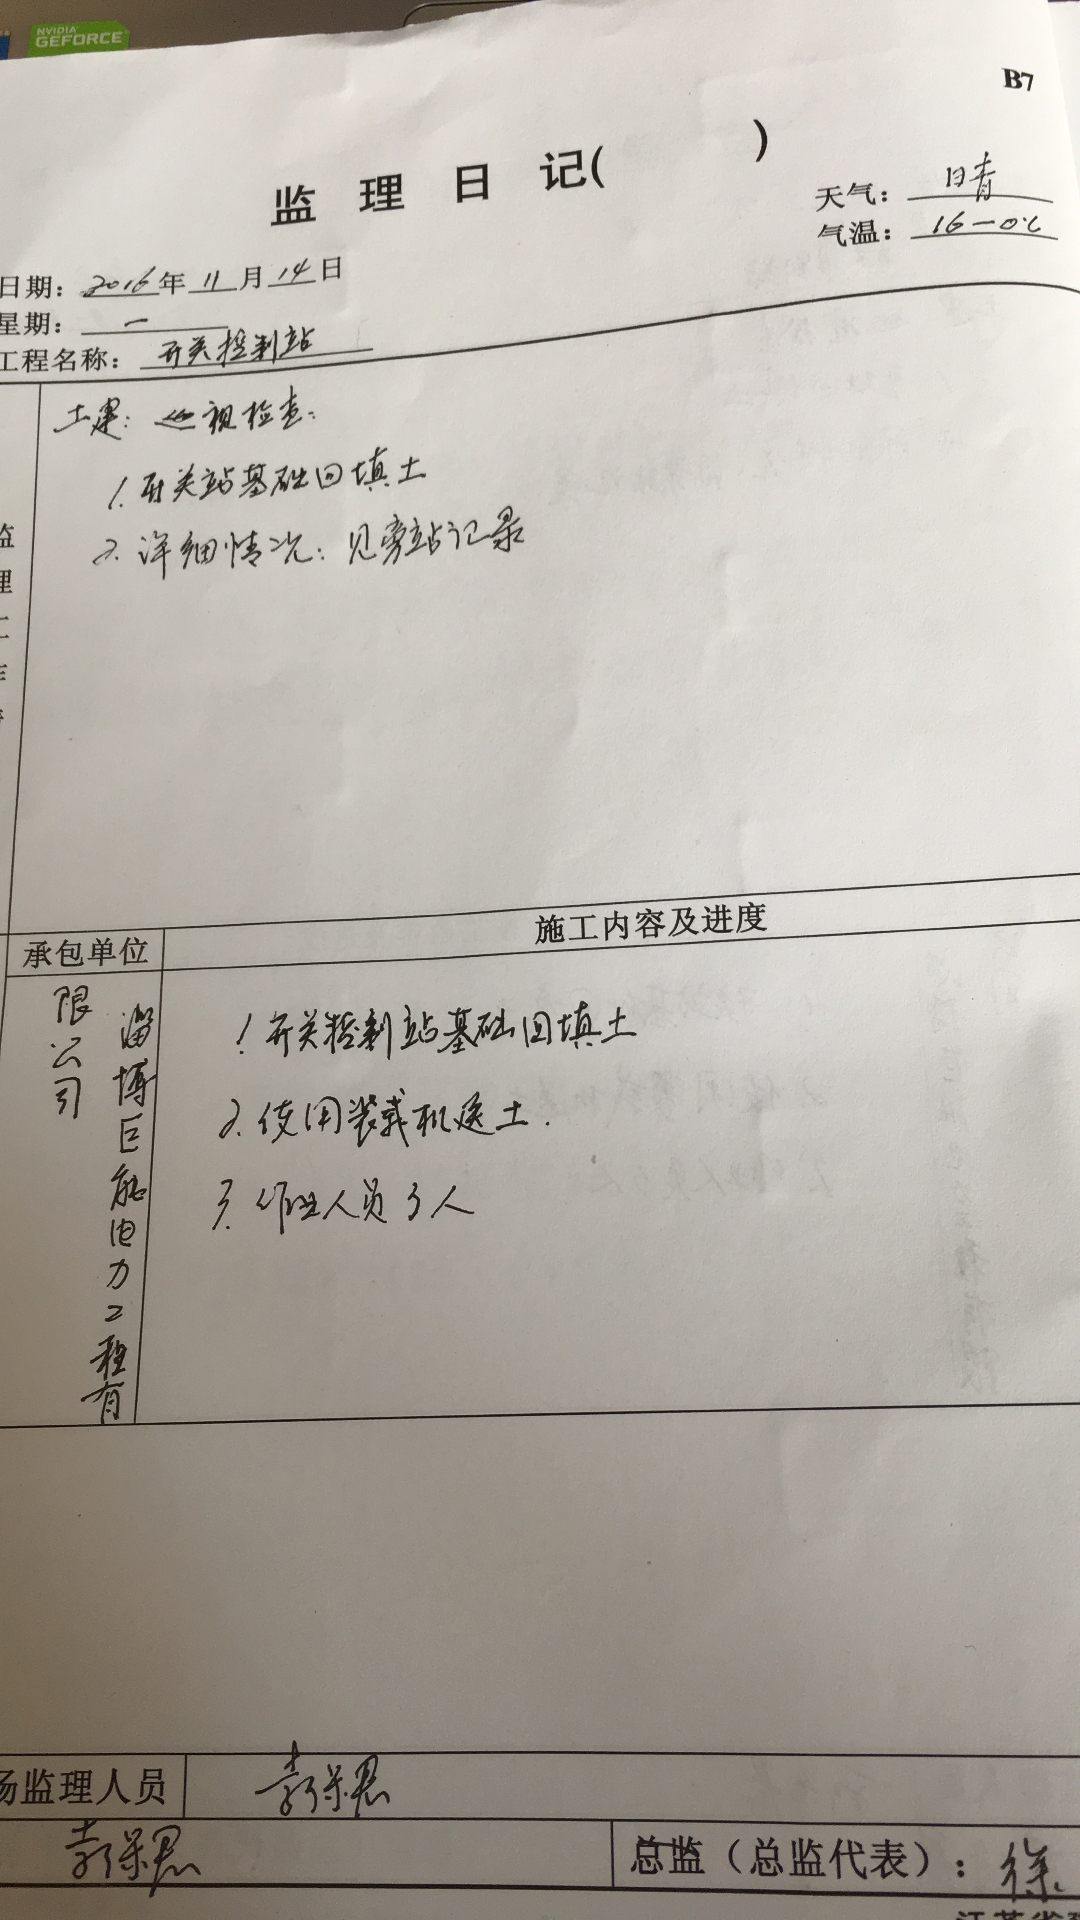 NVIDIA
GEFORCE
B7
监 理 日 记( )
天气: 晴
气温: 16-0℃
日期: 2016年 11月 14日
星期: 一
工程名称: 开关控制站
监
理
工
作
土建: 巡视检查:
1. 开关站基础回填土
2. 详细情况: 见旁站记录
承包单位
施工内容及进度
淄博巨能电力工程有
限公司
1 开关控制站基础回填土
2. 使用装载机送土.
3. 作业人员3人
场监理人员
总监（总监代表）: 徐